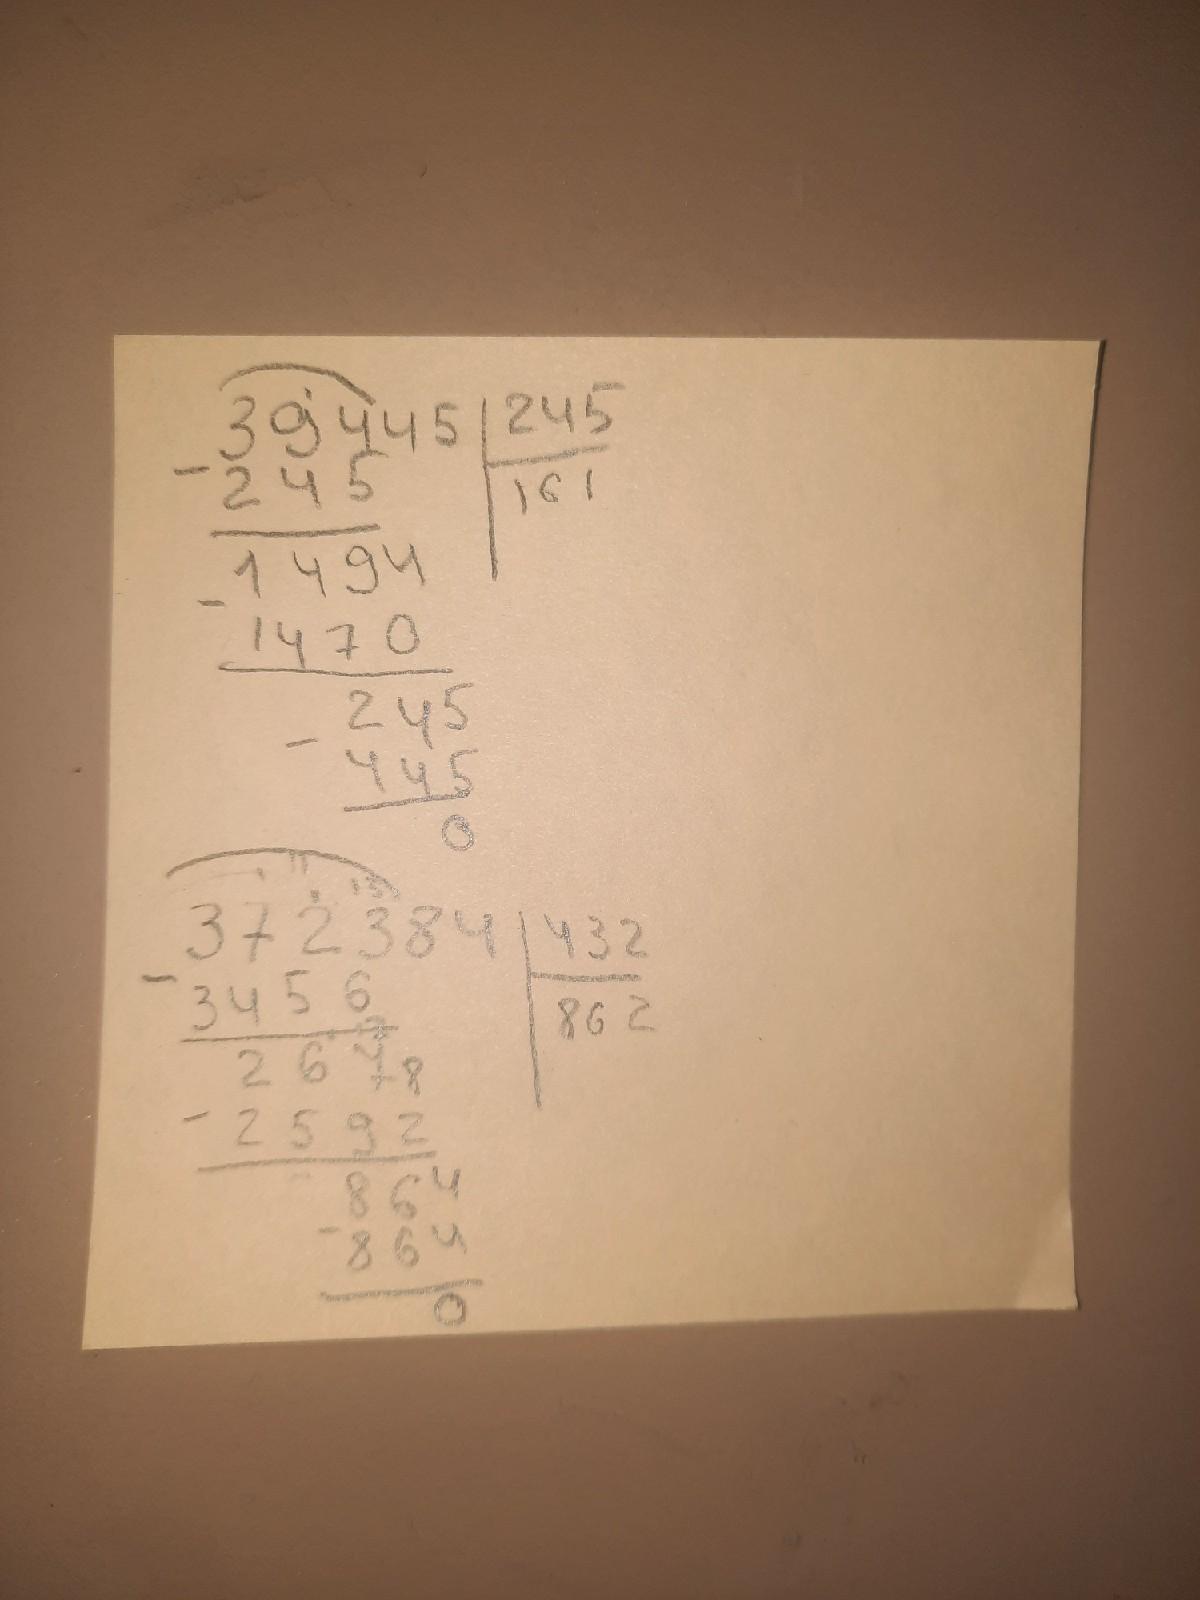 39445 | 245
- 245 | 161
1494
- 1470
245
- 445
0
372384 | 432
- 3456 | 862
2678
- 2592
864
- 864
0